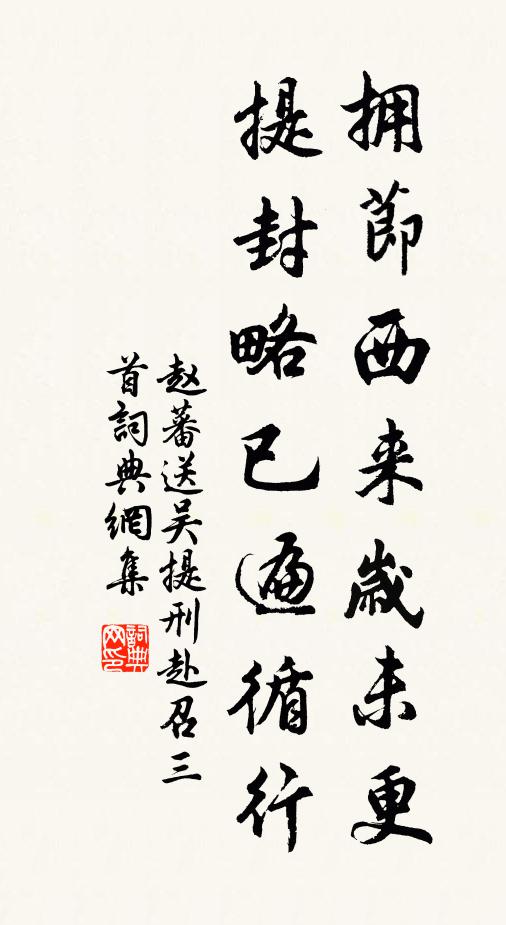 拥節西来歲未更
提封略已遍循行
赵蕃送吴提刑赴召三
首詞典網集
詞典網印